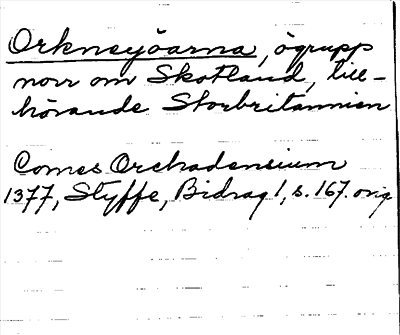 Orkneyöarna, ögrupp
norr om Skotland, till-
hörande Storbritannien
Comes Orchadensium
1377, Styffe, Bidrag 1, s. 167. orig